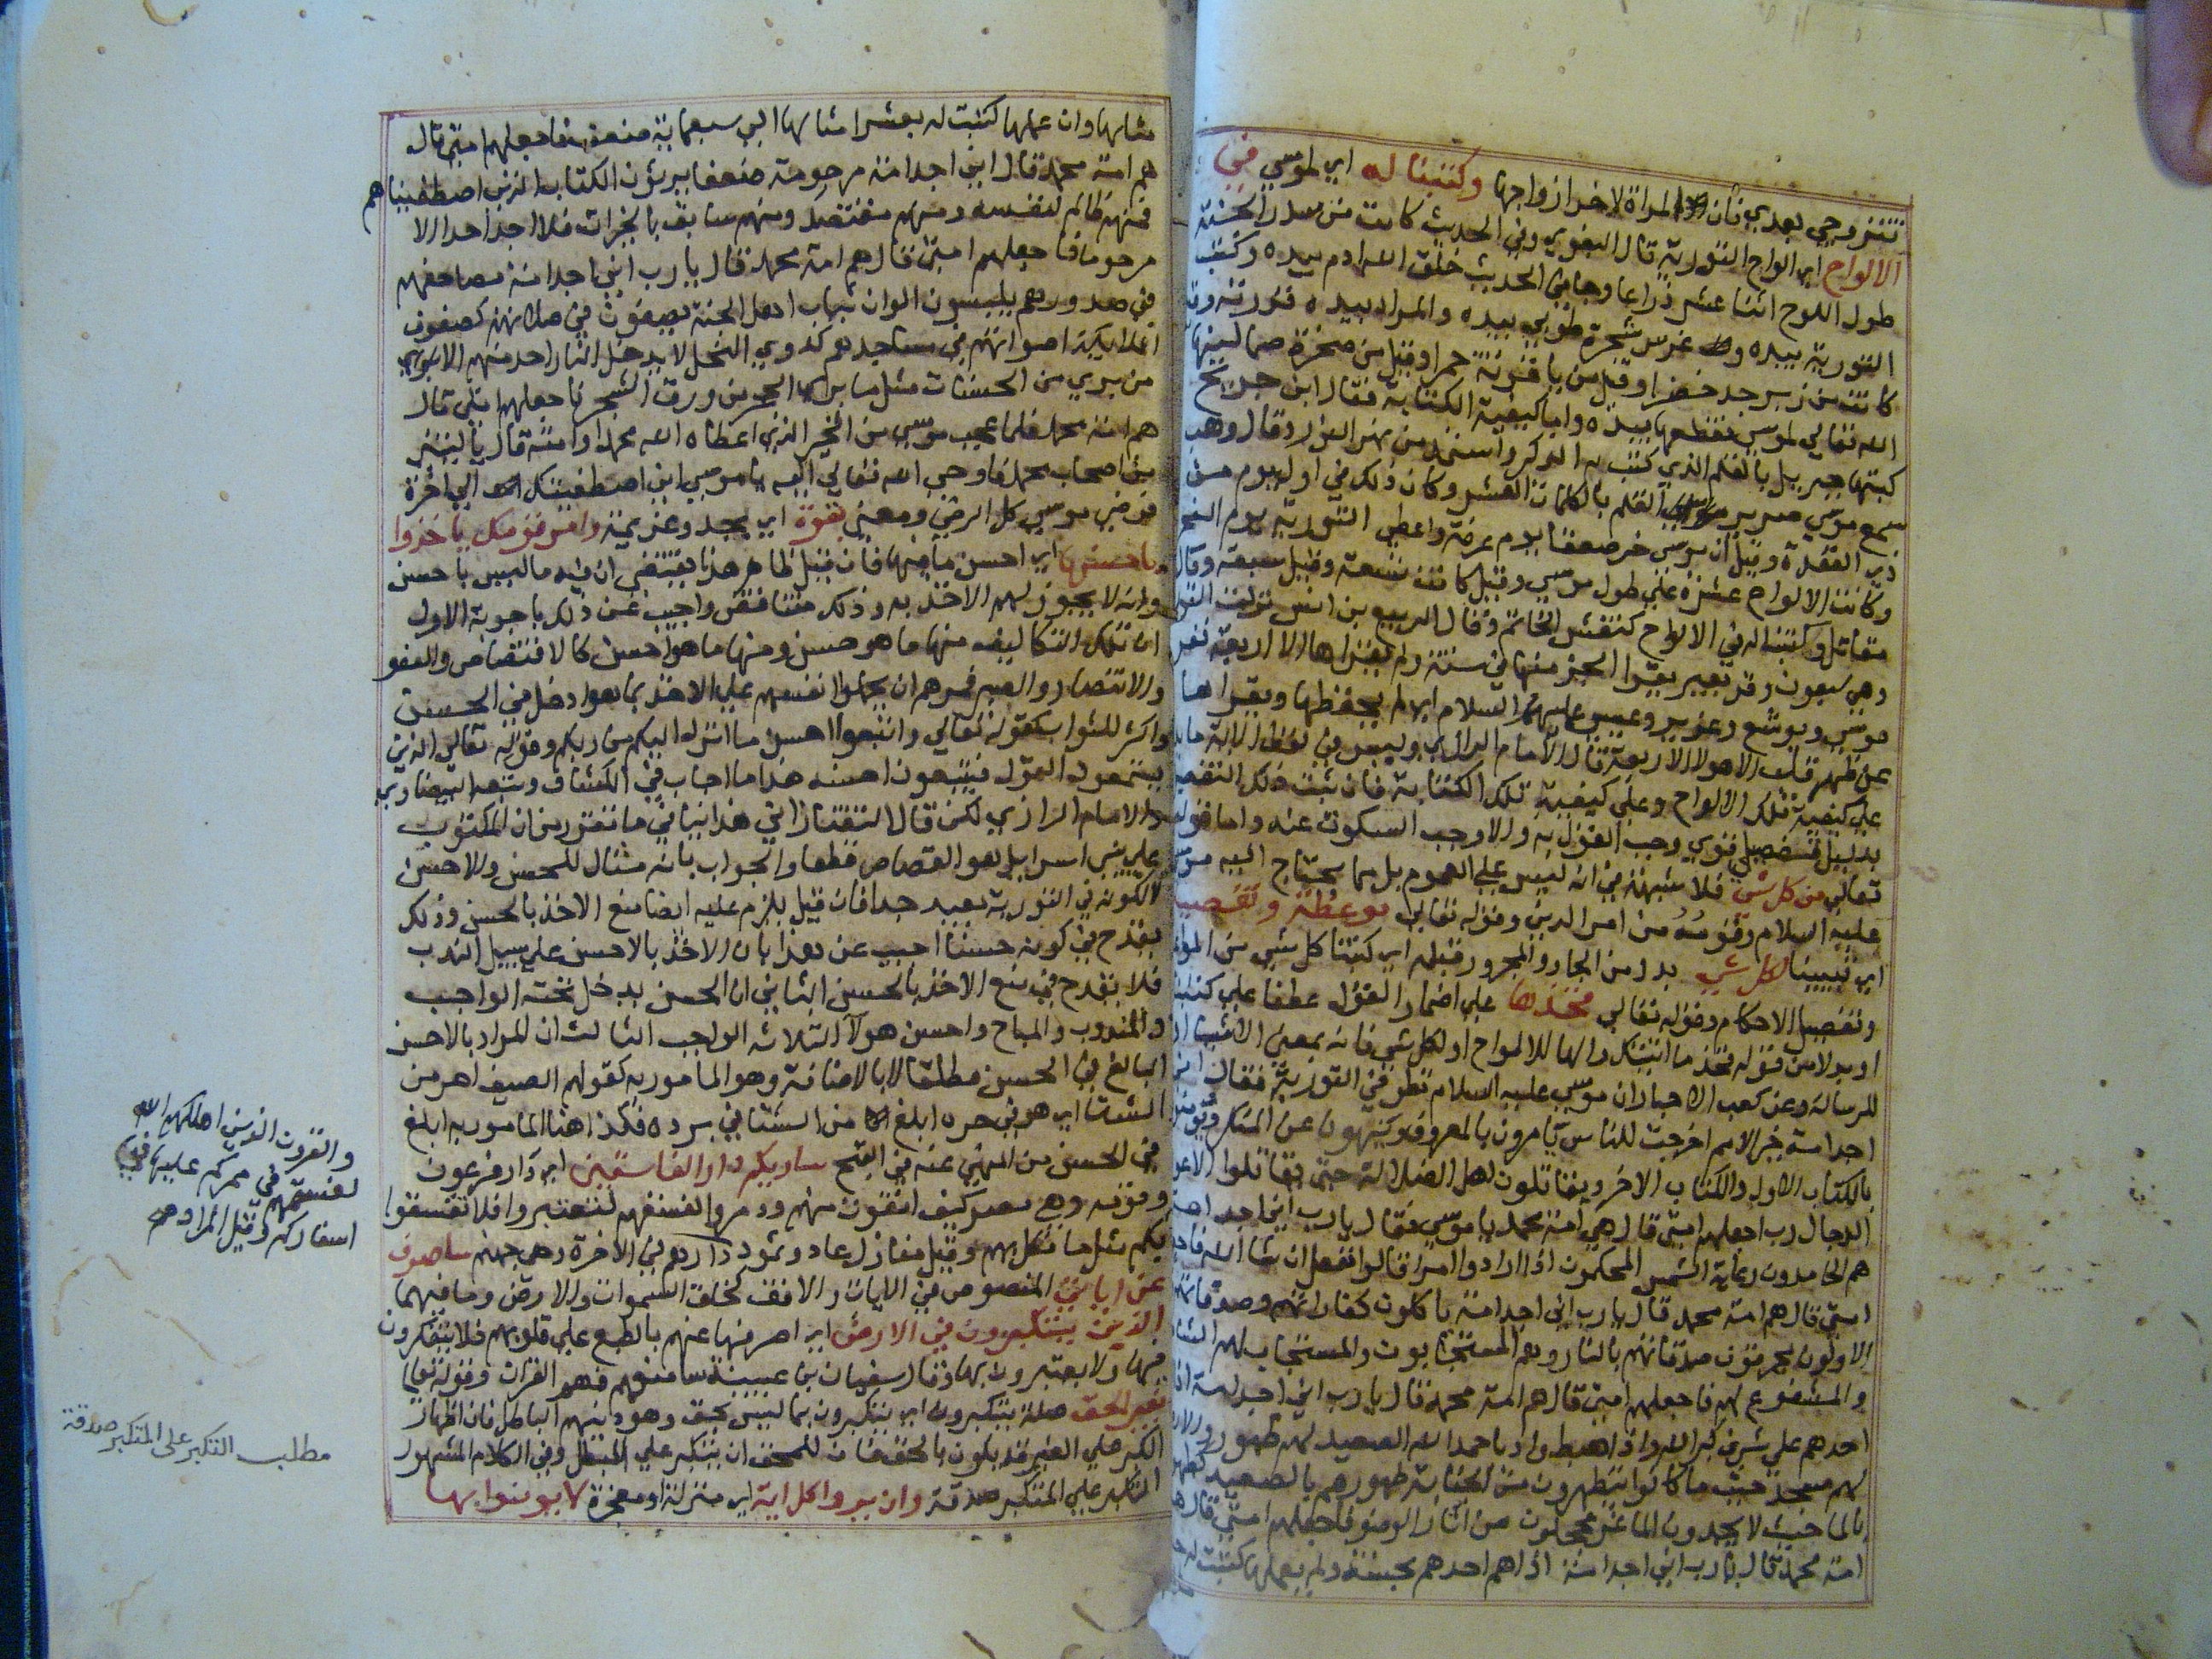 تتزوجي بعدي فان المراة لاخر ازواجها وكتبنا له اي لموسي في
الالواح اي الواح التورية قال البغوي وفي الحديث كانت من سدر الجنة
طول اللوح اثنا عشر ذراعا وجا في الحديث خلق الله ادم بيده وكتب
التورية بيده وغرس شجرة طوبي بيده والمراد بيده قدرته وقيل
كانت من زبرجد خضرا وقيل من ياقوتة حمرا وقيل من صخرة صما لينها
الله تعالي لموسي فقطعها بيده واما كيفية الكتابة فقال ابن جريج
كتبها جبريل بالقلم الذي كتب به الذكر واستمد من نهر النور وقال وهب
سمع موسي صرير القلم بالكلمات العشر وكان ذلك في اول يوم من
ذي القعدة وقيل ان موسي خر صعقا يوم عرفة واعطي التورية يوم النحر
وكانت الالواح عشرة علي طول موسي وقيل كانت تسعة وقيل سبعة وقال
مقاتل وكتبنا له في الالواح كنقش الخاتم وقال الربيع بن انس نزلت التورية
وهي سبعون وقر بعير يقرا الجز منها في سنة ولم يقراها الا اربعة نفر
موسي ويوشع وعزير وعيسي عليهم السلام اي لم يحفظها ويقراها
عن ظهر قلب الا هولا الاربعة قال الامام الرازي وليس في لفظ الاية ما يدل
علي كيفية تلك الالواح وعلي كيفية تلك الكتابة فان ثبت ذلك التفصيل
بدليل منفصل قوي وجب القول به والا وجب السكوت عنه واما قوله
تعالي من كل شي فلا شبهة في انه ليس علي العموم بل مما يحتاج اليه موسي
عليه السلام وقومه من امر الدين وقوله تعالي موعظة وتفصيلا
اي تبيينا لكل شي بدل من الجار والمجرور قبله اي كتبنا كل شي من المواعظ
وتفصيل الاحكام وقوله تعالي فخذها علي اضمار القول عطفا علي كتبنا
او بدلا من قوله فخذ ما اتيتك والها للالواح او لكل شي فانه بمعني الاشيا او
للرسالة وعن كعب الاحبار ان موسي عليه السلام نظر في التورية فقال اني
اجد امة خير الامم اخرجت للناس يامرون بالمعروف وينهون عن المنكر ويومنون
بالكتاب الاول والكتاب الاخر ويقاتلون اهل الضلالة حتي يقاتلوا الاعور
الدجال رب اجعلهم امتي قال هي امة محمد يا موسي فقال يا رب اني اجد امة
هم الحامدون رعاة الشمس المحكمون اذا ارادوا امرا قالوا نفعل ان شا الله فاجعلهم
امتي قال هم امة محمد قال يا رب اني اجد امة ياكلون كفاراتهم وصدقاتهم
الاولون يحرقون صدقاتهم بالنار وهم المستجابون والمستجاب لهم الشافعون
والمشفوع لهم فاجعلهم امتي قال هم امة محمد قال يا رب اني اجد امة اذا
احدهم علي شرف كبر الله واذا هبط واديا حمد الله الصعيد لهم طهور والارض
لهم مسجد حيث ما كانوا يتطهرون من الجنابة طهورهم بالصعيد كطهورهم
بالما حيث لا يجدون الما غر محجلون من اثار الوضو فاجعلهم امتي قال هم
امة محمد قال يا رب اني اجد امة اذا هم احدهم بحسنة ولم يعملها كتبت له
مثلها وان عملها كتبت له بعشر امثالها الي سبعماية ضعف فاجعلهم امتي قال
هم امة محمد قال اني اجد امة مرحومة ضعفا يرثون الكتاب الذين اصطفيناهم
فمنهم ظالم لنفسه ومنهم مقتصد ومنهم سابق بالخيرات فلا اجد احدا الا
مرحوما فاجعلهم امتي قال هم امة محمد قال يا رب اني اجد امة مصاحفهم
في صدورهم يلبسون الوان ثياب اهل الجنة يصفون في صلاتهم كصفوف
الملائكة اصواتهم في مساجدهم كدوي النحل لا يدخل النار احد منهم الا
من بري من الحسنات مثل ما بري الحجر من ورق الشجر فاجعلهم امتي قال
هم امة محمد فلما عجب موسي من الخير الذي اعطاه الله محمدا وامته قال يا ليتني
من اصحاب محمد فاوحي الله تعالي اليه يا موسي اني اصطفيتك الي اخره
فرضي موسي كل الرضي ومعني بقوة اي بجد وعزيمة وامر قومك ياخذوا
باحسنها اي احسن ما فيها فان قيل ظاهر هذا يقتضي ان فيه ما ليس باحسن
وانه لا يجوز لهم الاخذ به وذلك متناقض واجيب عن ذلك باجوبة الاول
ان تلك التكاليف منها ما هو حسن ومنها ما هو احسن كالاقتصاص والعفو
والانتصار والصبر فمرهم ان يحملوا انفسهم علي الاخذ بما هو ادخل في الحسن
واكثر للثواب كقوله تعالي واتبعوا احسن ما انزل اليكم من ربكم وقوله تعالي الذين
يستمعون القول فيتبعون احسنه هذا ما اجاب في الكشاف وتبعه البيضاوي
والامام الرازي لكن قال التفتازاني هذا ينافي ما تقرر من ان المكتوب
علي بني اسرايل هو القصاص قطعا والجواب بانه مثال للحسن والاحسن
لا لكونه في التورية بعيد جدا فان قيل يلزم عليه ايضا منع الاخذ بالحسن وذلك
يقدح في كونه حسنا اجيب عن هذا بان الاخذ بالاحسن علي سبيل الندب
فلا يقدح في منع الاخذ بالحسن الثاني ان الحسن يدخل تحته الواجب
والمندوب والمباح واحسن هولا الثلاثة الواجب الثالث ان المراد بالاحسن
البالغ في الحسن مطلقا لا بالاضافة وهو المامور به كقولهم الصيف احر من
الشتا اي هو في حره ابلغ من الشتا في برده فكذا هنا المامور به ابلغ
في الحسن من المنهي عنه في القبح ساريكم دار الفاسقين اي دار فرعون
وقومه وهي مصر كيف اقفرت منهم ودمروا لفسقهم لتعتبروا فلا تفسقوا
بكم مثل ما نكل بهم وقيل منازل عاد وثمود دارهم في الاخرة وهي جهنم ساصرف
عن اياتي المنصوص في الايات والافف كخلق السموات والارض وما فيهما
الذين يتكبرون في الارض اي اصرفها عنهم بالطبع علي قلوبهم فلا يتفكرون
فيها ولا يعتبرون بها وقال سفيان بن عيينة سامنعهم فهم القران وقوله تعالي
بغير الحق صلة يتكبرون اي يتكبرون بما ليس بحق وهو دينهم الباطل فان اظهار
الكبر علي الغير قد يكون بالحق فان للمحق ان يتكبر علي المبطل وفي الكلام المشهور
التكبر علي المتكبر صدقة وان يروا كل اية اي منزلة او معجزة لا يومنوا بها
والقرون الذين اهلكهم الله
لفسقهم في ممركم عليها في
اسفاركم وقيل المراد
مطلب التكبر على المتكبر صدقة